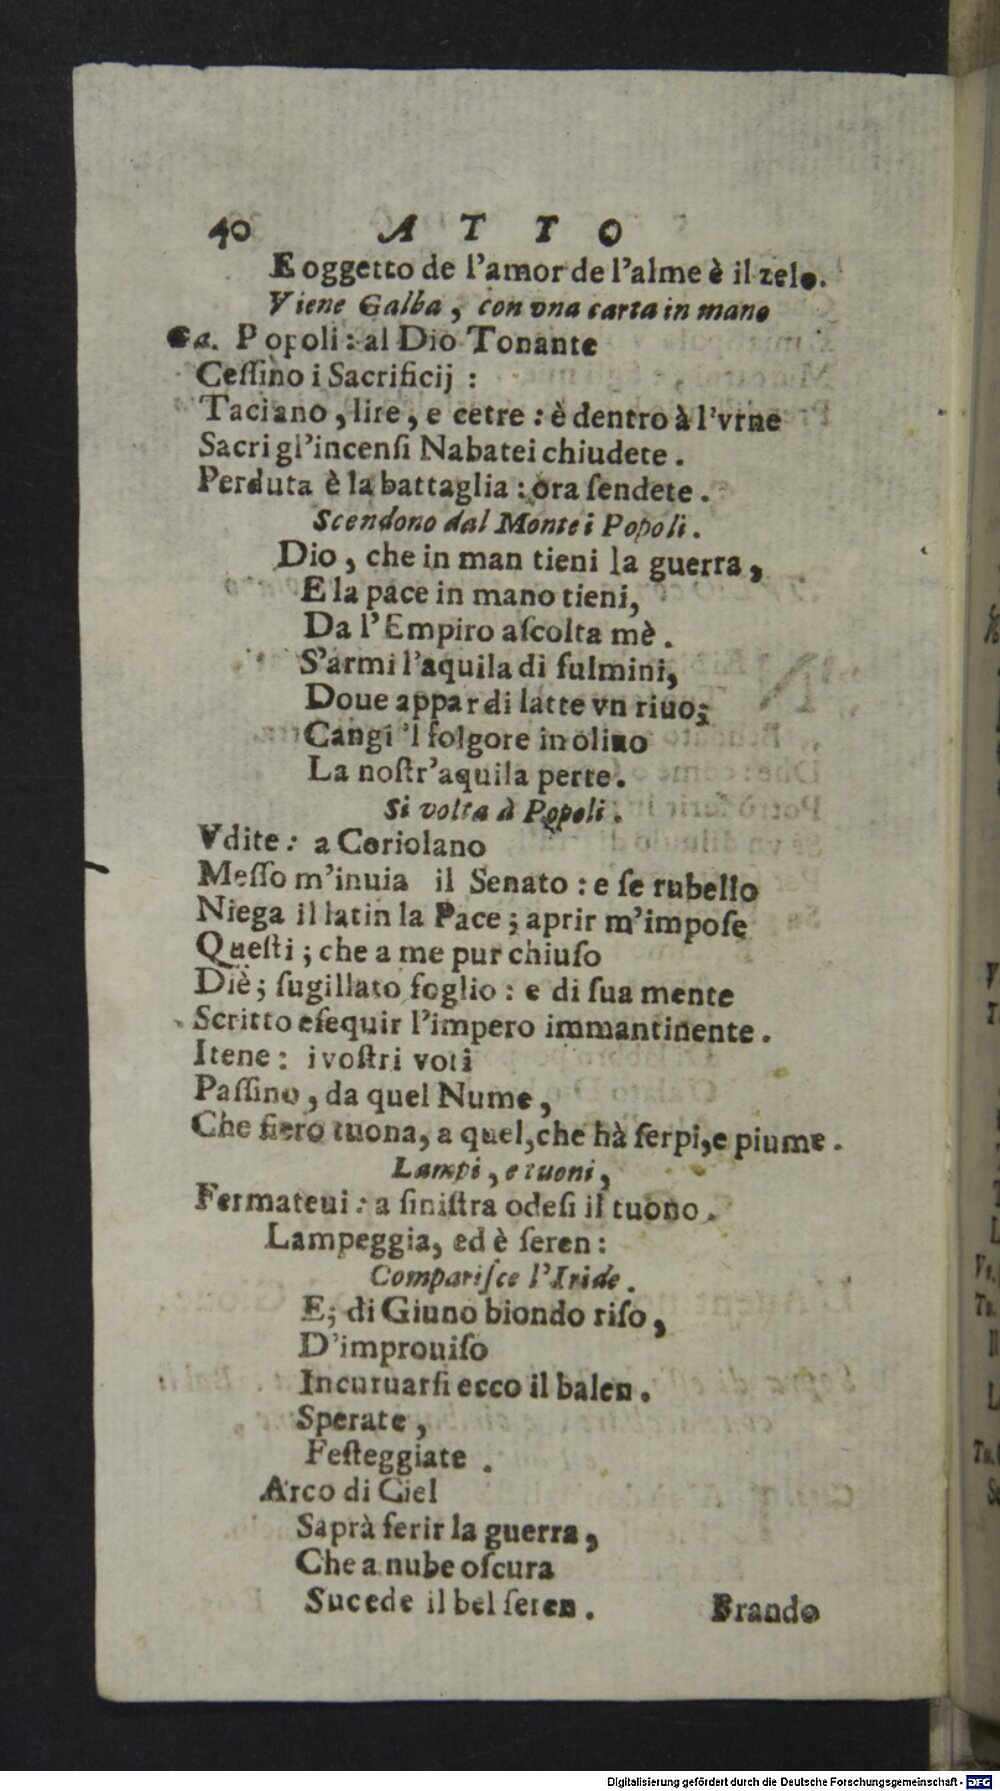 40 ATTO
E oggetto de l'amor de l'alme è il zelo.
Viene Galba, con vna carta in mano
Ga. Popoli: al Dio Tonante
Ceſſino i Sacrificij :
Taciano, lire, e cetre: è dentro à l'vrne
Sacri gl'incenſi Nabatei chiudete.
Perduta è la battaglia: ora ſendete.
Scendono dal Monte i Popoli.
Dio, che in man tieni la guerra,
E la pace in mano tieni,
Da l'Empiro aſcolta mè.
S'armi l'aquila di fulmini,
Doue appar di latte vn riuo;
Cangi 'l folgore in oliuo
La noſtr'aquila perte.
Si volta à Popoli.
Vdite: a Coriolano
Meſſo m'inuia il Senato: e ſe rubello
Niega il latin la Pace; aprir m'impoſe
Queſti; che a me pur chiuſo
Diè; ſugillato foglio: e di ſua mente
Scritto eſequir l'impero immantinente.
Itene: i voſtri voti
Paſſino, da quel Nume,
Che fiero tuona, a quel, che hà ſerpi, e piume.
Lampi, e tuoni,
Fermateui: a ſiniſtra odeſi il tuono.
Lampeggia, ed è ſeren:
Compariſce l'Iride.
E; di Giuno biondo riſo,
D'improuiſo
Incuruarſi ecco il balen.
Sperate,
Feſteggiate.
Arco di Ciel
Saprà ferir la guerra,
Che a nube oſcura
Sucede il bel ſeren.
Brando
Digitalisierung gefördert durch die Deutsche Forschungsgemeinschaft - DFG